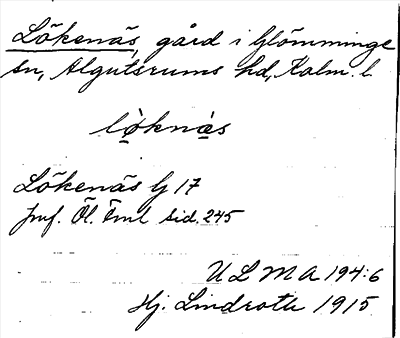 Lökenäs, gård i Glömminge
sn, Algutsrums hd, Kalm. l.
lö̀knäs
Lökenäs G 17
jmf. Öl. Fml sid. 245
ULMA 194:6
Hj. Lindroth 1915